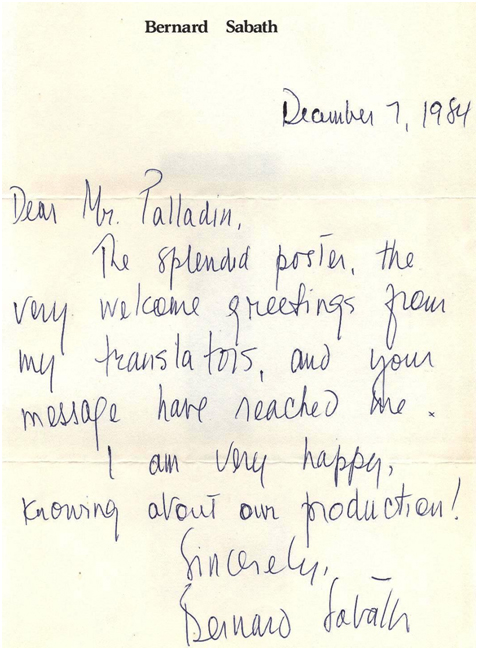 Bernard Sabath
December 7, 1984
Dear Mr. Palladin,
The splendid poster, the
very welcome greetings from
my translators, and your
message have reached me.
I am very happy,
knowing about our production!
Sincerely,
Bernard Sabath